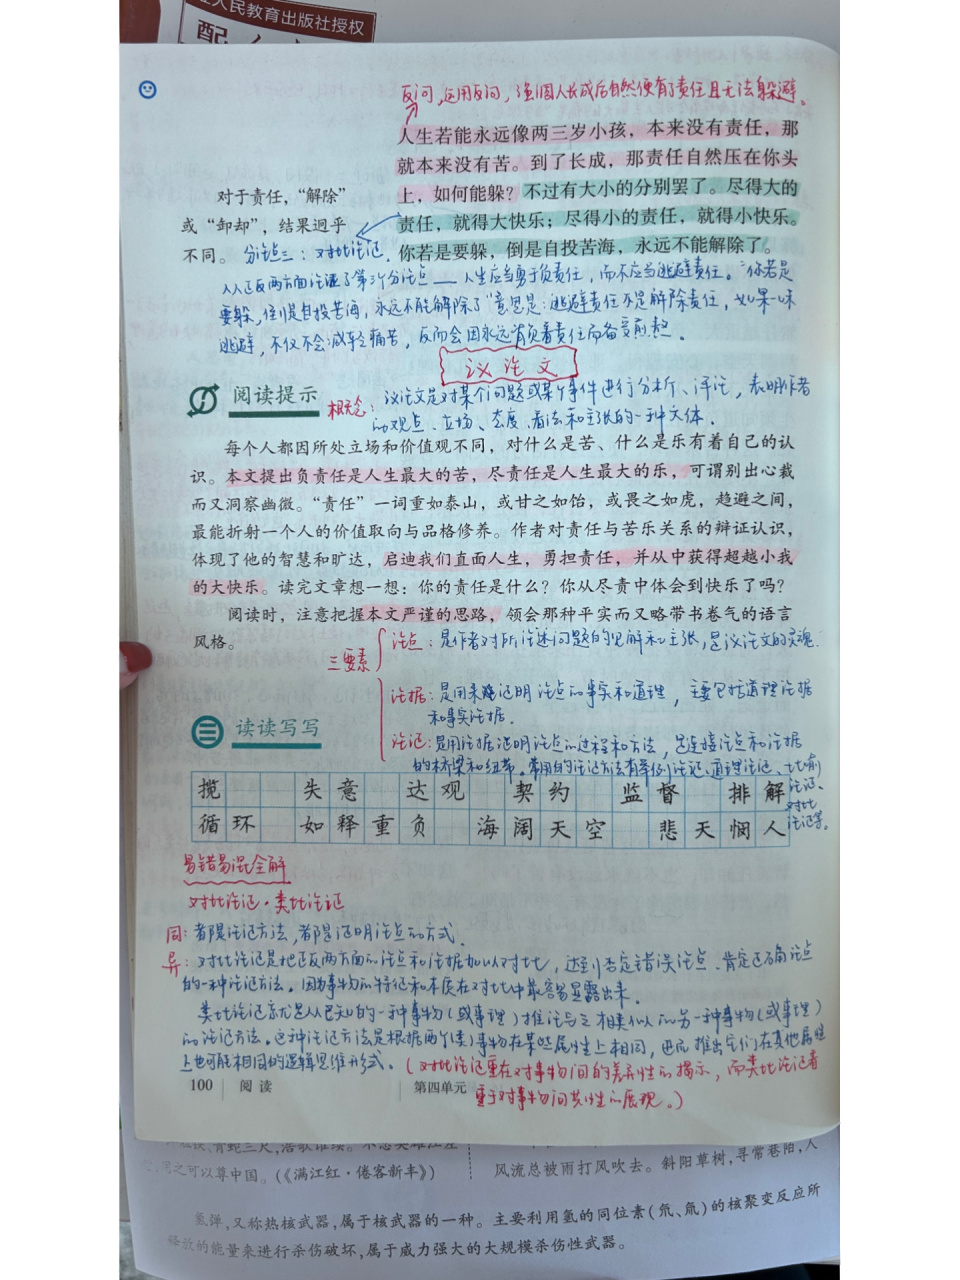 人民教育出版社授权
反问，运用反问，强调人长成后自然便有了责任且无法躲避。
人生若能永远像两三岁小孩，本来没有责任，那
就本来没有苦。到了长成，那责任自然压在你头
上，如何能躲？不过有大小的分别罢了。尽得大的
责任，就得大快乐；尽得小的责任，就得小快乐。
你若是要躲，倒是自投苦海，永远不能解除了。
对于责任，“解除”
或“卸却”，结果迥乎
不同。
分论点三：对比论证
从正反两方面论证了第三个分论点——人生应当勇于负责任，而不应当逃避责任。“你若是
要躲，倒是自投苦海，永远不能解除了”意思是：逃避责任不是解除责任，如果一味
逃避，不仅不会减轻痛苦，反而会因永远背负着责任而备受煎熬。
议论文
阅读提示
概念：议论文是对某个问题或某个事件进行分析、评论，表明作者
的观点、立场、态度、看法和主张的一种文体。
每个人都因所处立场和价值观不同，对什么是苦、什么是乐有着自己的认
识。本文提出负责任是人生最大的苦，尽责任是人生最大的乐，可谓别出心裁
而又洞察幽微。“责任”一词重如泰山，或甘之如饴，或畏之如虎，趋避之间，
最能折射一个人的价值取向与品格修养。作者对责任与苦乐关系的辩证认识，
体现了他的智慧和旷达，启迪我们直面人生，勇担责任，并从中获得超越小我
的大快乐。读完文章想一想：你的责任是什么？你从尽责中体会到快乐了吗？
阅读时，注意把握本文严谨的思路，领会那种平实而又略带书卷气的语言
风格。
三要素
论点：是作者对所论述问题的见解和主张，是议论文的灵魂.
论据：是用来证明论点的事实和道理，主要包括道理论据
和事实论据．
论证：是用论据证明论点的过程和方法，是连接论点和论据
的桥梁和纽带。常用的论证方法有举例论证、道理论证、比喻
论证、
对比
论证等。
读读写写
揽 失意 达观 契约 监督 排解
循环 如释重负 海阔天空 悲天悯人
易错易混全解
对比论证·类比论证
同：都是论证方法，都是证明论点的方式．
异：对比论证是把正反两方面的论点和论据加以对比，达到否定错误论点、肯定正确论点
的一种论证方法。因为事物的特征和本质在对比中最容易显露出来．
类比论证就是从已知的一种事物（或事理）推论与之相类似的另一种事物（或事理）
的论证方法。这种论证方法是根据两个(类)事物在某些属性上相同，进而推出它们在其他属性
上也可能相同的逻辑思维形式。（对比论证重在对事物间的差异性的揭示，而类比论证着
重于对事物间共性的展现。）
100 阅读 第四单元
青蛇三尺，浩歌谁续。不念英雄江左
之可以尊中国。(《满江红·倦客新丰》)
风流总被雨打风吹去。斜阳草树，寻常巷陌，人
氢弹，又称热核武器，属于核武器的一种。主要利用氢的同位素(氘、氚)的核聚变反应所
释放的能量来进行杀伤破坏，属于威力强大的大规模杀伤性武器。